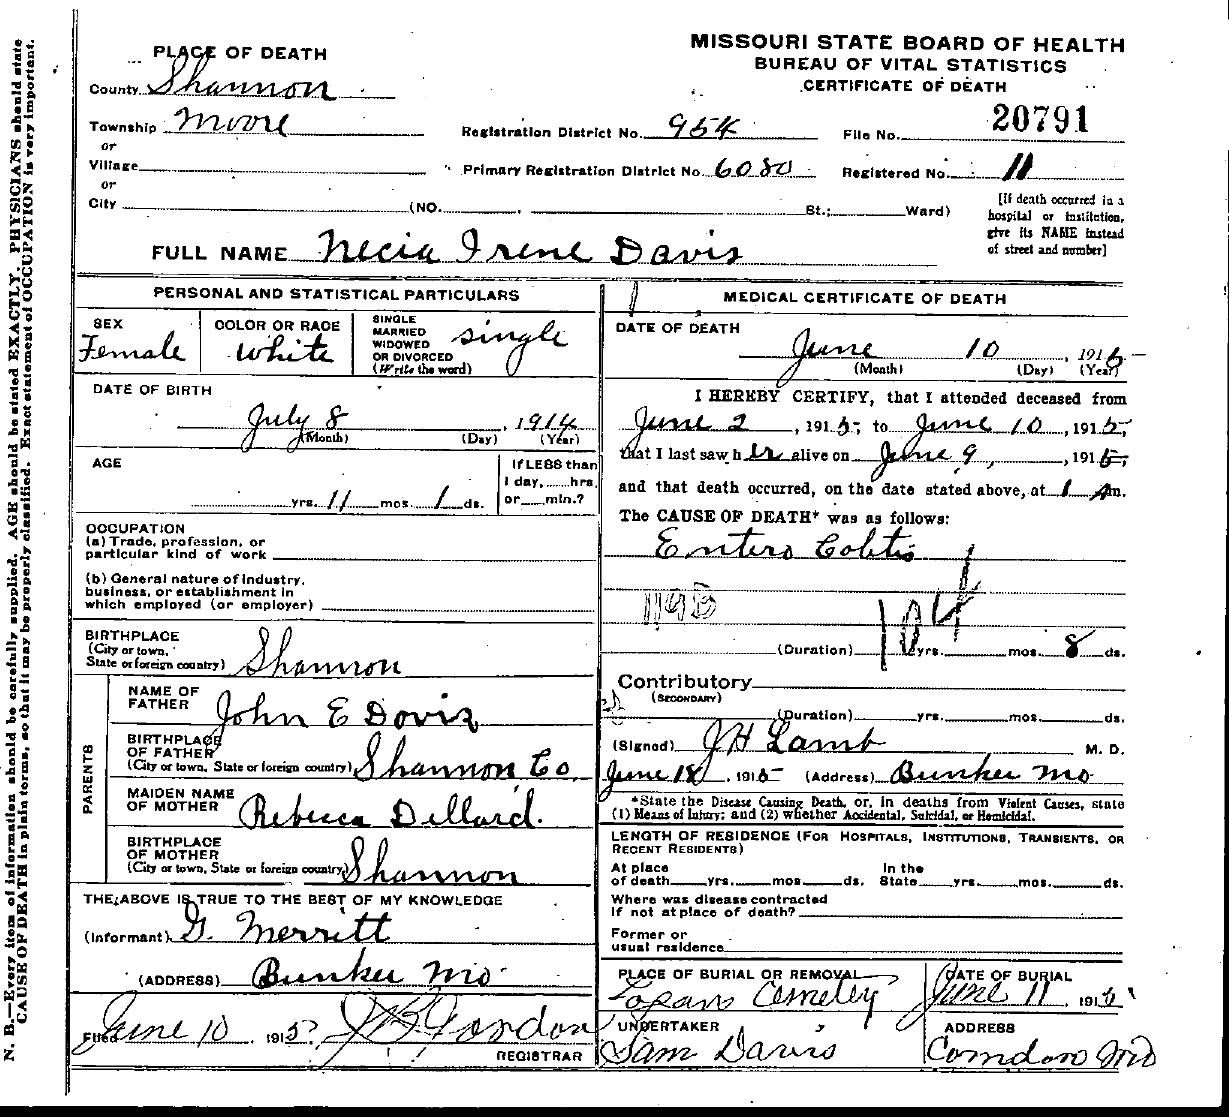 MISSOURI STATE BOARD OF HEALTH
BUREAU OF VITAL STATISTICS
CERTIFICATE OF DEATH
PLACE OF DEATH
County Shannon
Township Moore
or
Village
or
City (NO. St.; Ward)
Registration District No. 954
Primary Registration District No. 6080
File No. 20791
Registered No. 11
[If death occurred in a
hospital or institution,
give its NAME instead
of street and number]
FULL NAME Necia Irene Davis
PERSONAL AND STATISTICAL PARTICULARS
SEX
Female
COLOR OR RACE
White
SINGLE
MARRIED
WIDOWED
OR DIVORCED
(Write the word)
single
DATE OF BIRTH
July 8, 1914
(Month) (Day) (Year)
AGE
yrs. 11 mos. 1 ds.
If LESS than
1 day, hrs.
or min.?
OCCUPATION
(a) Trade, profession, or
particular kind of work
(b) General nature of industry,
business, or establishment in
which employed (or employer)
BIRTHPLACE
(City or town,
State or foreign country) Shannon
PARENTS
NAME OF
FATHER John E Davis
BIRTHPLACE
OF FATHER
(City or town, State or foreign country) Shannon Co
MAIDEN NAME
OF MOTHER Rebecca Dillard.
BIRTHPLACE
OF MOTHER
(City or town, State or foreign country) Shannon
THE ABOVE IS TRUE TO THE BEST OF MY KNOWLEDGE
(Informant) G. Merritt
(ADDRESS) Bunker Mo.
Filed June 10, 1915
REGISTRAR
MEDICAL CERTIFICATE OF DEATH
DATE OF DEATH
June 10, 1915
(Month) (Day) (Year)
I HEREBY CERTIFY, that I attended deceased from
June 2, 1915, to June 10, 1915,
that I last saw her alive on June 9, 1915,
and that death occurred, on the date stated above, at 1 Am.
The CAUSE OF DEATH* was as follows:
Entero Colitis
119B
104
(Duration) yrs. mos. 8 ds.
Contributory
(SECONDARY)
(Duration) yrs. mos. ds.
(Signed) JH Lamb M. D.
June 18, 1915 (Address) Bunker Mo
*State the Disease Causing Death, or, in deaths from Violent Causes, state
(1) Means of Injury; and (2) whether Accidental, Suicidal, or Homicidal.
LENGTH OF RESIDENCE (FOR HOSPITALS, INSTITUTIONS, TRANSIENTS, OR
RECENT RESIDENTS)
At place
of death yrs. mos. ds.
In the
State yrs. mos. ds.
Where was disease contracted
if not at place of death?
Former or
usual residence
PLACE OF BURIAL OR REMOVAL
Logans Cemetey
DATE OF BURIAL
June 11, 1915
UNDERTAKER
Sam Davis
ADDRESS
Corndon Mo
N. B.—Every item of information should be carefully supplied. AGE should be stated EXACTLY. PHYSICIANS should state
CAUSE OF DEATH in plain terms, so that it may be properly classified. Exact statement of OCCUPATION is very important.